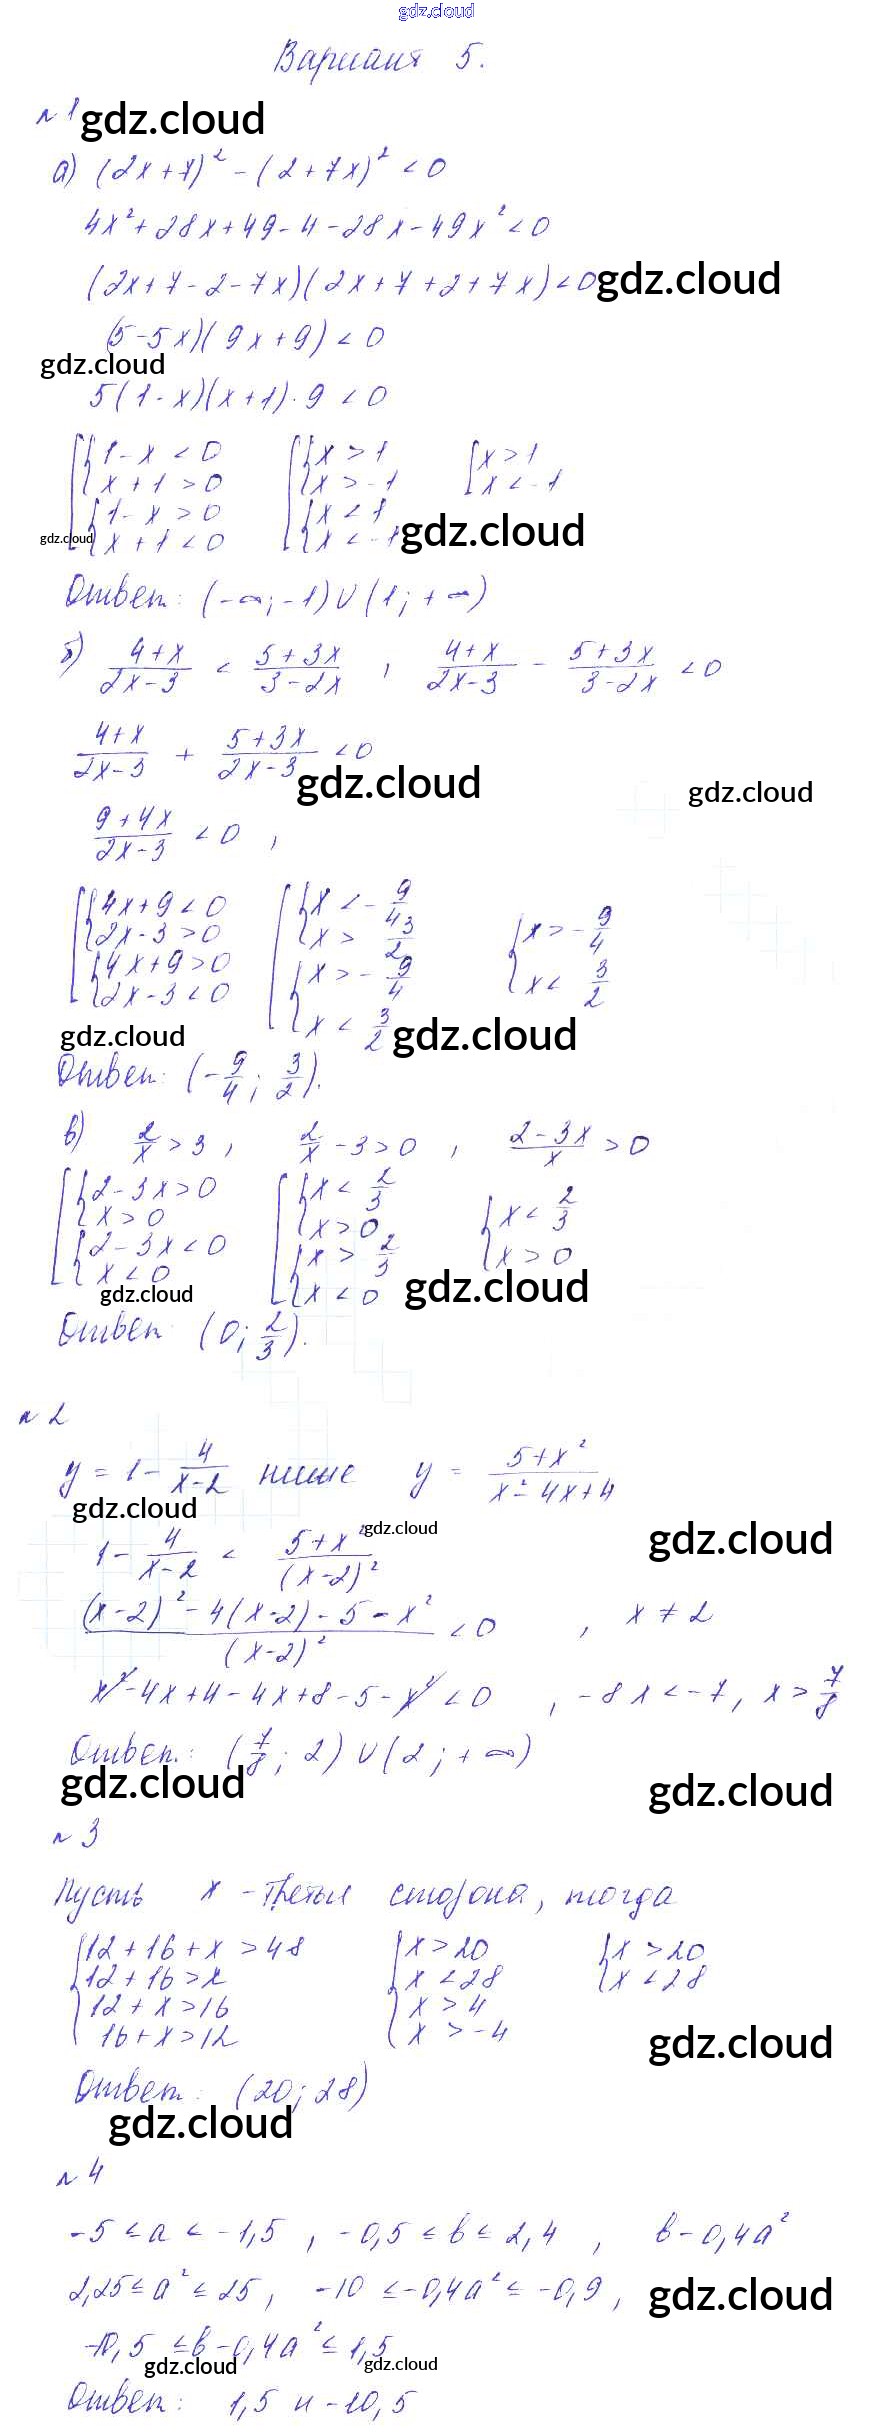 gdz.cloud
Вариант 5.
№1 gdz.cloud
а) (2x+7)² - (2+7x)² < 0
4x² + 28x + 49 - 4 - 28x - 49x² < 0
(2x+7-2-7x)(2x+7+2+7x) < 0 gdz.cloud
(5-5x)(9x+9) < 0
gdz.cloud
5(1-x)(x+1)·9 < 0
[ { 1-x < 0 [ { x > 1 [ x > 1
x+1 > 0 x > -1 x < -1
{ 1-x > 0 { x < 1
gdz.cloud x+1 < 0 x < -1 gdz.cloud
Ответ: (-∞; -1) ∪ (1; +∞)
б) (4+x)/(2x-3) < (5+3x)/(3-2x) , (4+x)/(2x-3) - (5+3x)/(3-2x) < 0
(4+x)/(2x-3) + (5+3x)/(2x-3) < 0
gdz.cloud gdz.cloud
(9+4x)/(2x-3) < 0 ,
[ { 4x+9 < 0 [ { x < -9/4
2x-3 > 0 x > 3/2 { x > -9/4
{ 4x+9 > 0 { x > -9/4 x < 3/2
2x-3 < 0 x < 3/2
gdz.cloud gdz.cloud
Ответ: (-9/4; 3/2).
в) 2/x > 3 , 2/x - 3 > 0 , (2-3x)/x > 0
[ { 2-3x > 0 [ { x < 2/3 { x < 2/3
x > 0 x > 0 x > 0
{ 2-3x < 0 { x > 2/3
x < 0 x < 0
gdz.cloud gdz.cloud
Ответ: (0; 2/3).
№2
y = 1 - 4/(x-2) ниже y = (5+x²)/(x²-4x+4)
gdz.cloud
gdz.cloud
gdz.cloud
1 - 4/(x-2) < (5+x²)/(x-2)²
((x-2)² - 4(x-2) - 5 - x²)/(x-2)² < 0 , x ≠ 2
x² - 4x + 4 - 4x + 8 - 5 - x² < 0 , -8x < -7, x > 7/8
Ответ: (7/8; 2) ∪ (2; +∞)
gdz.cloud gdz.cloud
№3
Пусть x - третья сторона, тогда
{ 12+16+x > 48 { x > 20 { x > 20
12+16 > x x < 28 x < 28
12+x > 16 x > 4
16+x > 12 x > -4
gdz.cloud
Ответ: (20; 28)
gdz.cloud
№4
-5 ≤ a ≤ -1,5 , -0,5 ≤ b ≤ 2,4 , b - 0,4a²
2,25 ≤ a² ≤ 25, -10 ≤ -0,4a² ≤ -0,9 , gdz.cloud
-10,5 ≤ b - 0,4a² ≤ 1,5
gdz.cloud gdz.cloud
Ответ: 1,5 и -10,5